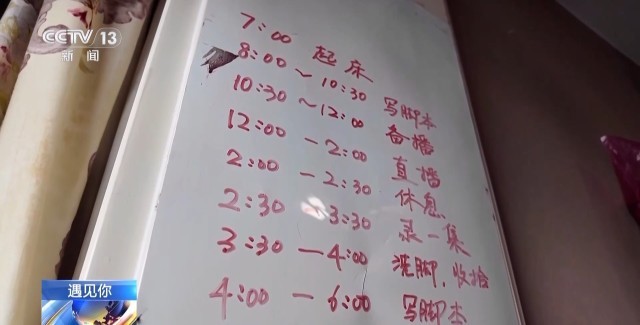 CCTV 13
新闻
7:00 起床
8:00 ~ 10:30 写脚本
10:30 ~ 12:00 备播
12:00 - 2:00 直播
2:00 - 2:30 休息
2:30 - 3:30 录一集
3:30 - 4:00 洗脚,收拾
4:00 - 6:00 写脚本
遇见你